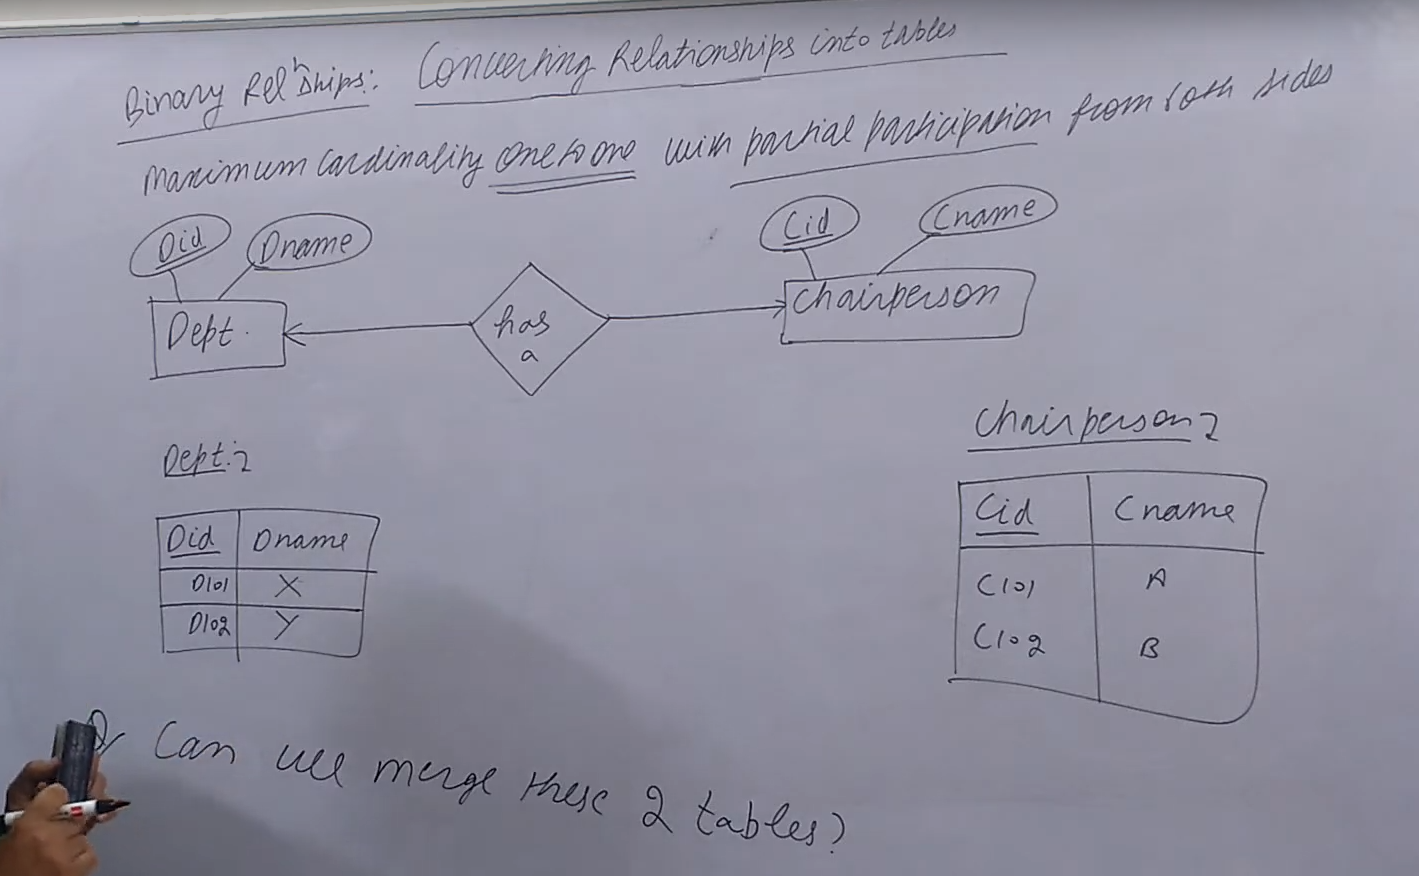 Binary Relnships: Converting Relationships into tables
Maximum cardinality one to one with partial participation from both sides
Did Dname Cid Cname
Dept. has a Chairperson
Dept:-
Chairperson:-
Did Dname
D101 X
D102 Y
Cid Cname
C101 A
C102 B
Q Can we merge these 2 tables?